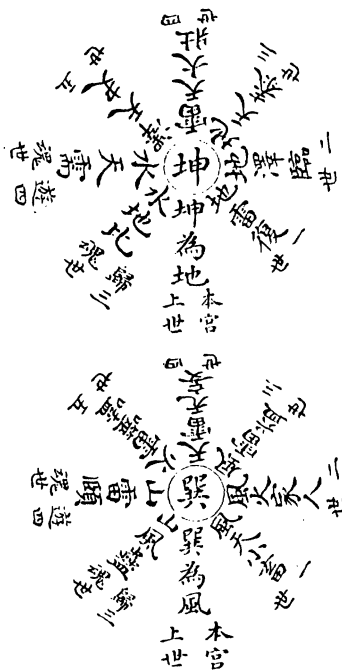 坤
坤為地 本宮上世
地雷復 一世
地澤臨 二世
地天泰 三世
雷天大壯 四世
澤天夬 五世
水天需 遊魂四世
水地比 歸魂三世
巽
巽為風 本宮上世
風天小畜 一世
風火家人 二世
風雷益 三世
天雷无妄 四世
火雷噬嗑 五世
山雷頤 遊魂四世
山風蠱 歸魂三世